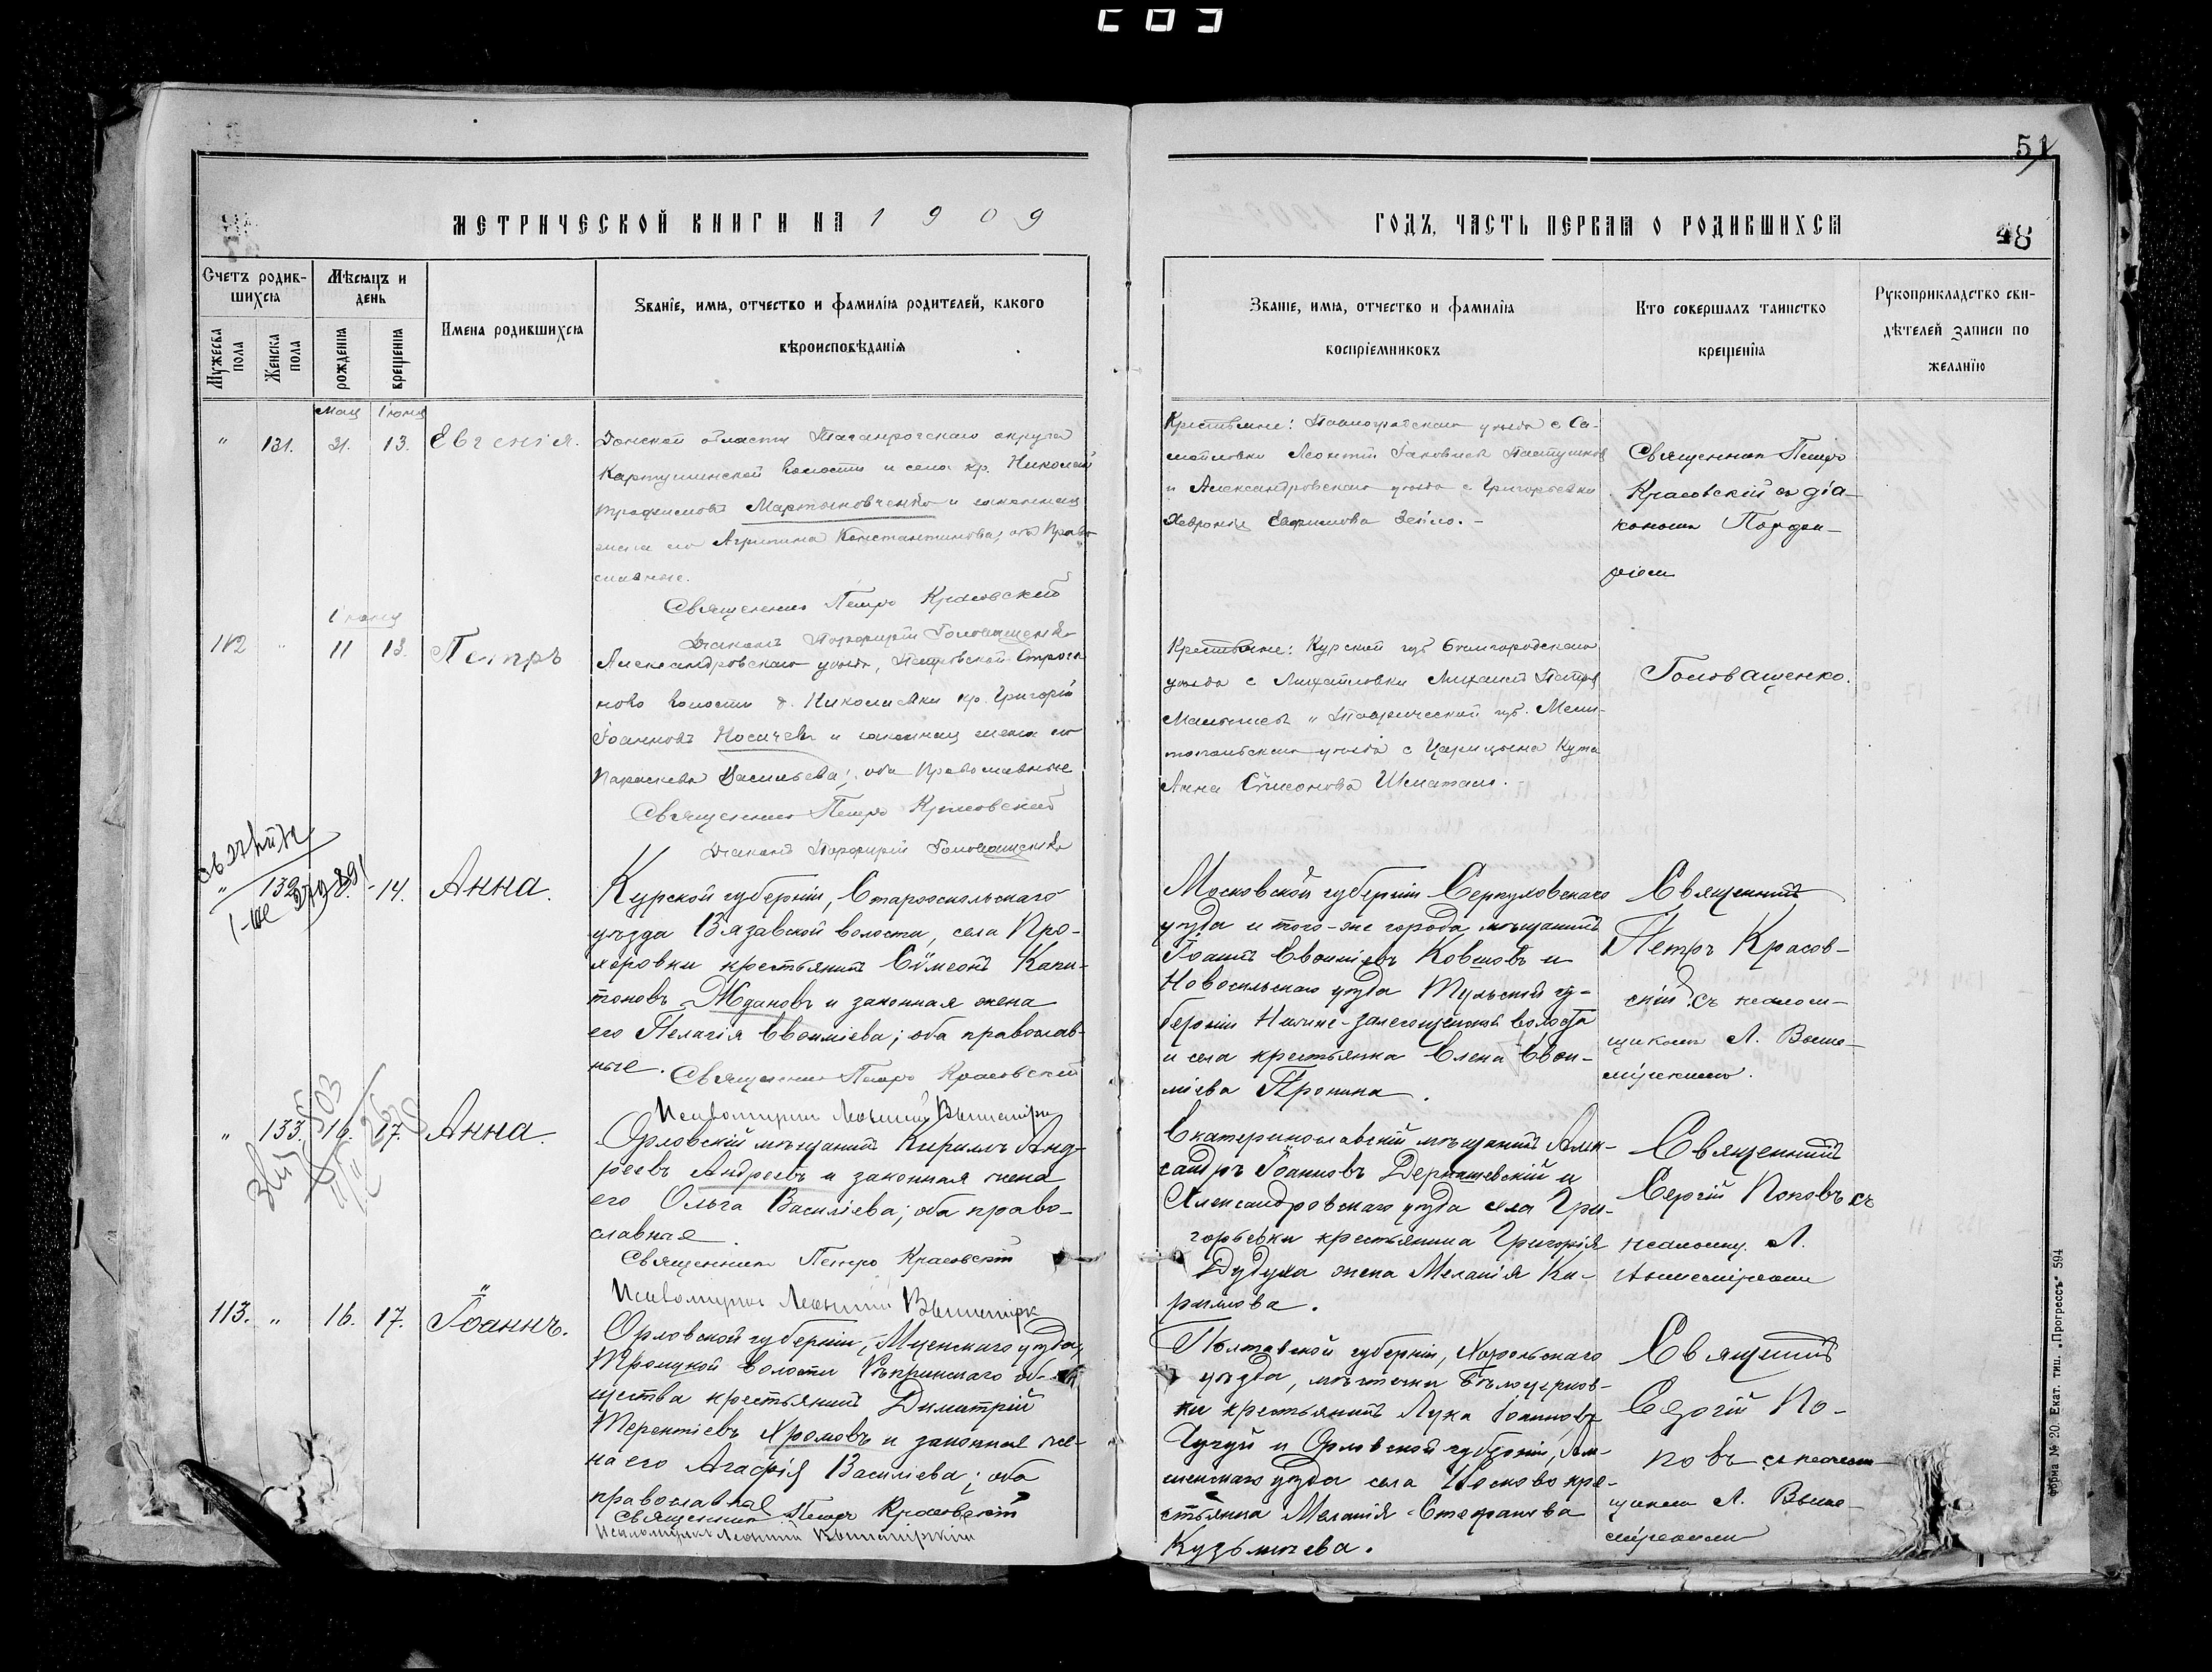 51
МЕТРИЧЕСКОЙ КНИГИ НА 1909
ГОДЪ, ЧАСТЬ ПЕРВАЯ О РОДИВШИХСЯ
48
Счетъ родив-
шихся
Мужеска пола
Женска пола
Мѣсяцъ и
день
рожденія
крещенія
Имена родившихся
Званіе, имя, отчество и фамилія родителей, какого
вѣроисповѣданія
Званіе, имя, отчество и фамилія
воспріемниковъ
Кто совершалъ таинство
крещенія
Рукоприкладство сви-
дѣтелей записи по
желанію
Мая Іюня
" 131. 31. 13. Евгенія.
Донской области Таганрогскаго округа
волости и села кр. Николай
Трофимовъ Мартыновченко и законная
жена его Агрипина Константинова; оба Право-
славные.
Священникъ Петръ Красовскій
Діаконъ Порфирій Головащенко
Крестьяне: Павлоградскаго уѣзда с Са-
мойловки Леонтій Іаковлевъ Пастушковъ
и Александровскаго уѣзда с Григорьевки
Хеврония Ефимова
Священникъ Петръ
Красовскій съ діа-
кономъ Порфи-
ріем
Іюня
112 " 11 13. Петръ
Александровскаго уѣзда, Петровской Строга-
ново волости д. Николаевки кр. Григорій
Іоанновъ Носачевъ и законная жена его
Параскева Васильева; оба Православные
Священникъ Петръ Красовскій
Діаконъ Порфирій Головащенко
Крестьяне: Курской губ Бѣлгородскаго
уѣзда с Михаилъ Петровъ
и Таврической губ. Мели-
топольскаго уѣзда с Царицына Кута
Анна Сѵмеонова
Головащенко.
" 132 14. Анна.
Курской губерніи, Старооскольскаго
уѣзда Вязавской волости, села Про-
меровки крестьянинъ Сѵмеонъ Капи-
тоновъ Ждановъ и законная жена
его Пелагія Евѳиміева; оба православ-
ные.
Священникъ Петръ Красовскій
Псаломщикъ Леонтій
Московской губерніи Серпуховскаго
уѣзда и того-же города мѣщанинъ
Іоаннъ Евѳиміевъ Ковшовъ и
Новосильскаго уѣзда Тульской гу-
берніи Нижне-Залегощенской волости
и села крестьянка Елена Евѳи-
міева Пронина.
Священникъ
Петръ Красов-
скій съ псалом-
щикомъ Л. Выше-
мірскимъ.
" 133. 16. 17. Анна.
Орловскій мѣщанинъ Кириллъ Анд-
реевъ Андреевъ и законная жена
его Ольга Василіева; оба право-
славная.
Священникъ Петръ Красовскій
Псаломщикъ Леонтій
Екатеринославскій мѣщанинъ Алек-
сандръ Іоанновъ и
Александровскаго уѣзда села Гри-
горьевки крестьянина Григорія
Дудука жена Меланія Ки-
риллова.
Священникъ
Сергій Поповъ съ
псаломщ. Л.
Вышемірскимъ
113. " 16. 17. Іоаннъ.
Орловской губерніи, Мценскаго уѣзда,
Троицкой волости об-
щества крестьянинъ Димитрій
Терентіевъ Хромовъ и законная же-
на его Агафія Василіева; оба
православная
Священникъ Петръ Красовскій
Псаломщикъ Леонтій Вышемірскій
Полтавской губерніи, Хорольскаго
уѣзда, мѣстечки Бѣлоцерков-
ки крестьянинъ Лука Іоанновъ
Чугуй и Орловской губерніи, Ам-
ценскаго уѣзда села кре-
стьянка Меланія Стефанова
Кузьмичева.
Священникъ
Сергій По-
повъ съ псалом-
щикомъ Л. Выше-
мірскимъ
Форма № 20. Екат. тип. „Прогрессъ“ 594